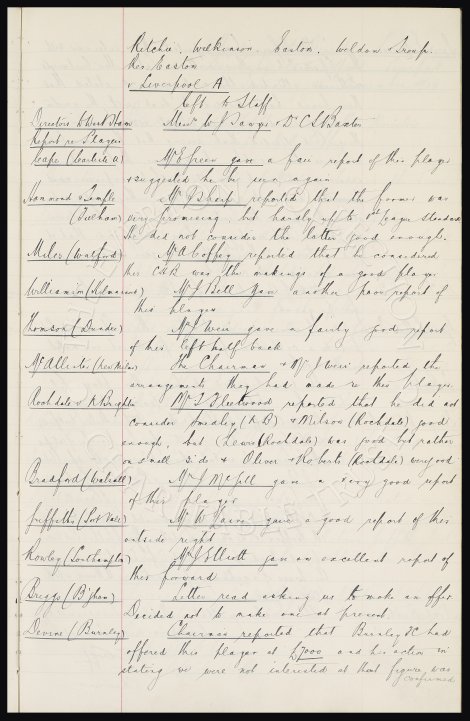 Ritchie, Wilkinson, Easton, Weldon & Troup.
Res Easton
v Liverpool A
left to Staff
Directors to West Ham Messrs W J Sawyer & Dr C S Baxter
Report re Player
Cape (Carlisle U) Mr E Green gave a fair report of this player
& suggested he be seen again
Hammond & Temple Mr J Sharp reported that the former was
(Fulham) very promising, but hardly up to 1st League Standard
He did not consider the latter good enough.
Miles (Watford) Mr A Coffey reported that he considered
this C H B was the makings of a good player
Williamson (St Mirren) Mr J Bell gave another poor report of
this player
Thomson (Dundee) Mr J Weir gave a fairly good report
of this left half back.
McAllister (New Milns) The Chairman & Mr J Weir reported the
arrangements they had made re this player.
Rochdale v N Brighton Mr S Fleetwood reported that he did not
consider Smedley (N B) & Milson (Rochdale) good
enough, but Lewis (Rochdale) was good but rather
on small side & Oliver & Roberts (Rochdale) very good
Bradford (Walsall) Mr J McGill gave a very good report
of this player
Griffiths (Port Vale) Mr W gave a good report of this
outside right
Rowley (Southampton) Mr J Elliott gave an excellent report of
this forward
Briggs (B'gham) Letter read asking us to make an offer
Decided not to make one at present.
Devine (Burnley) Chairman reported that Burnley FC had
offered this player at £7000 and his action in
stating we were not interested at that figure was
confirmed